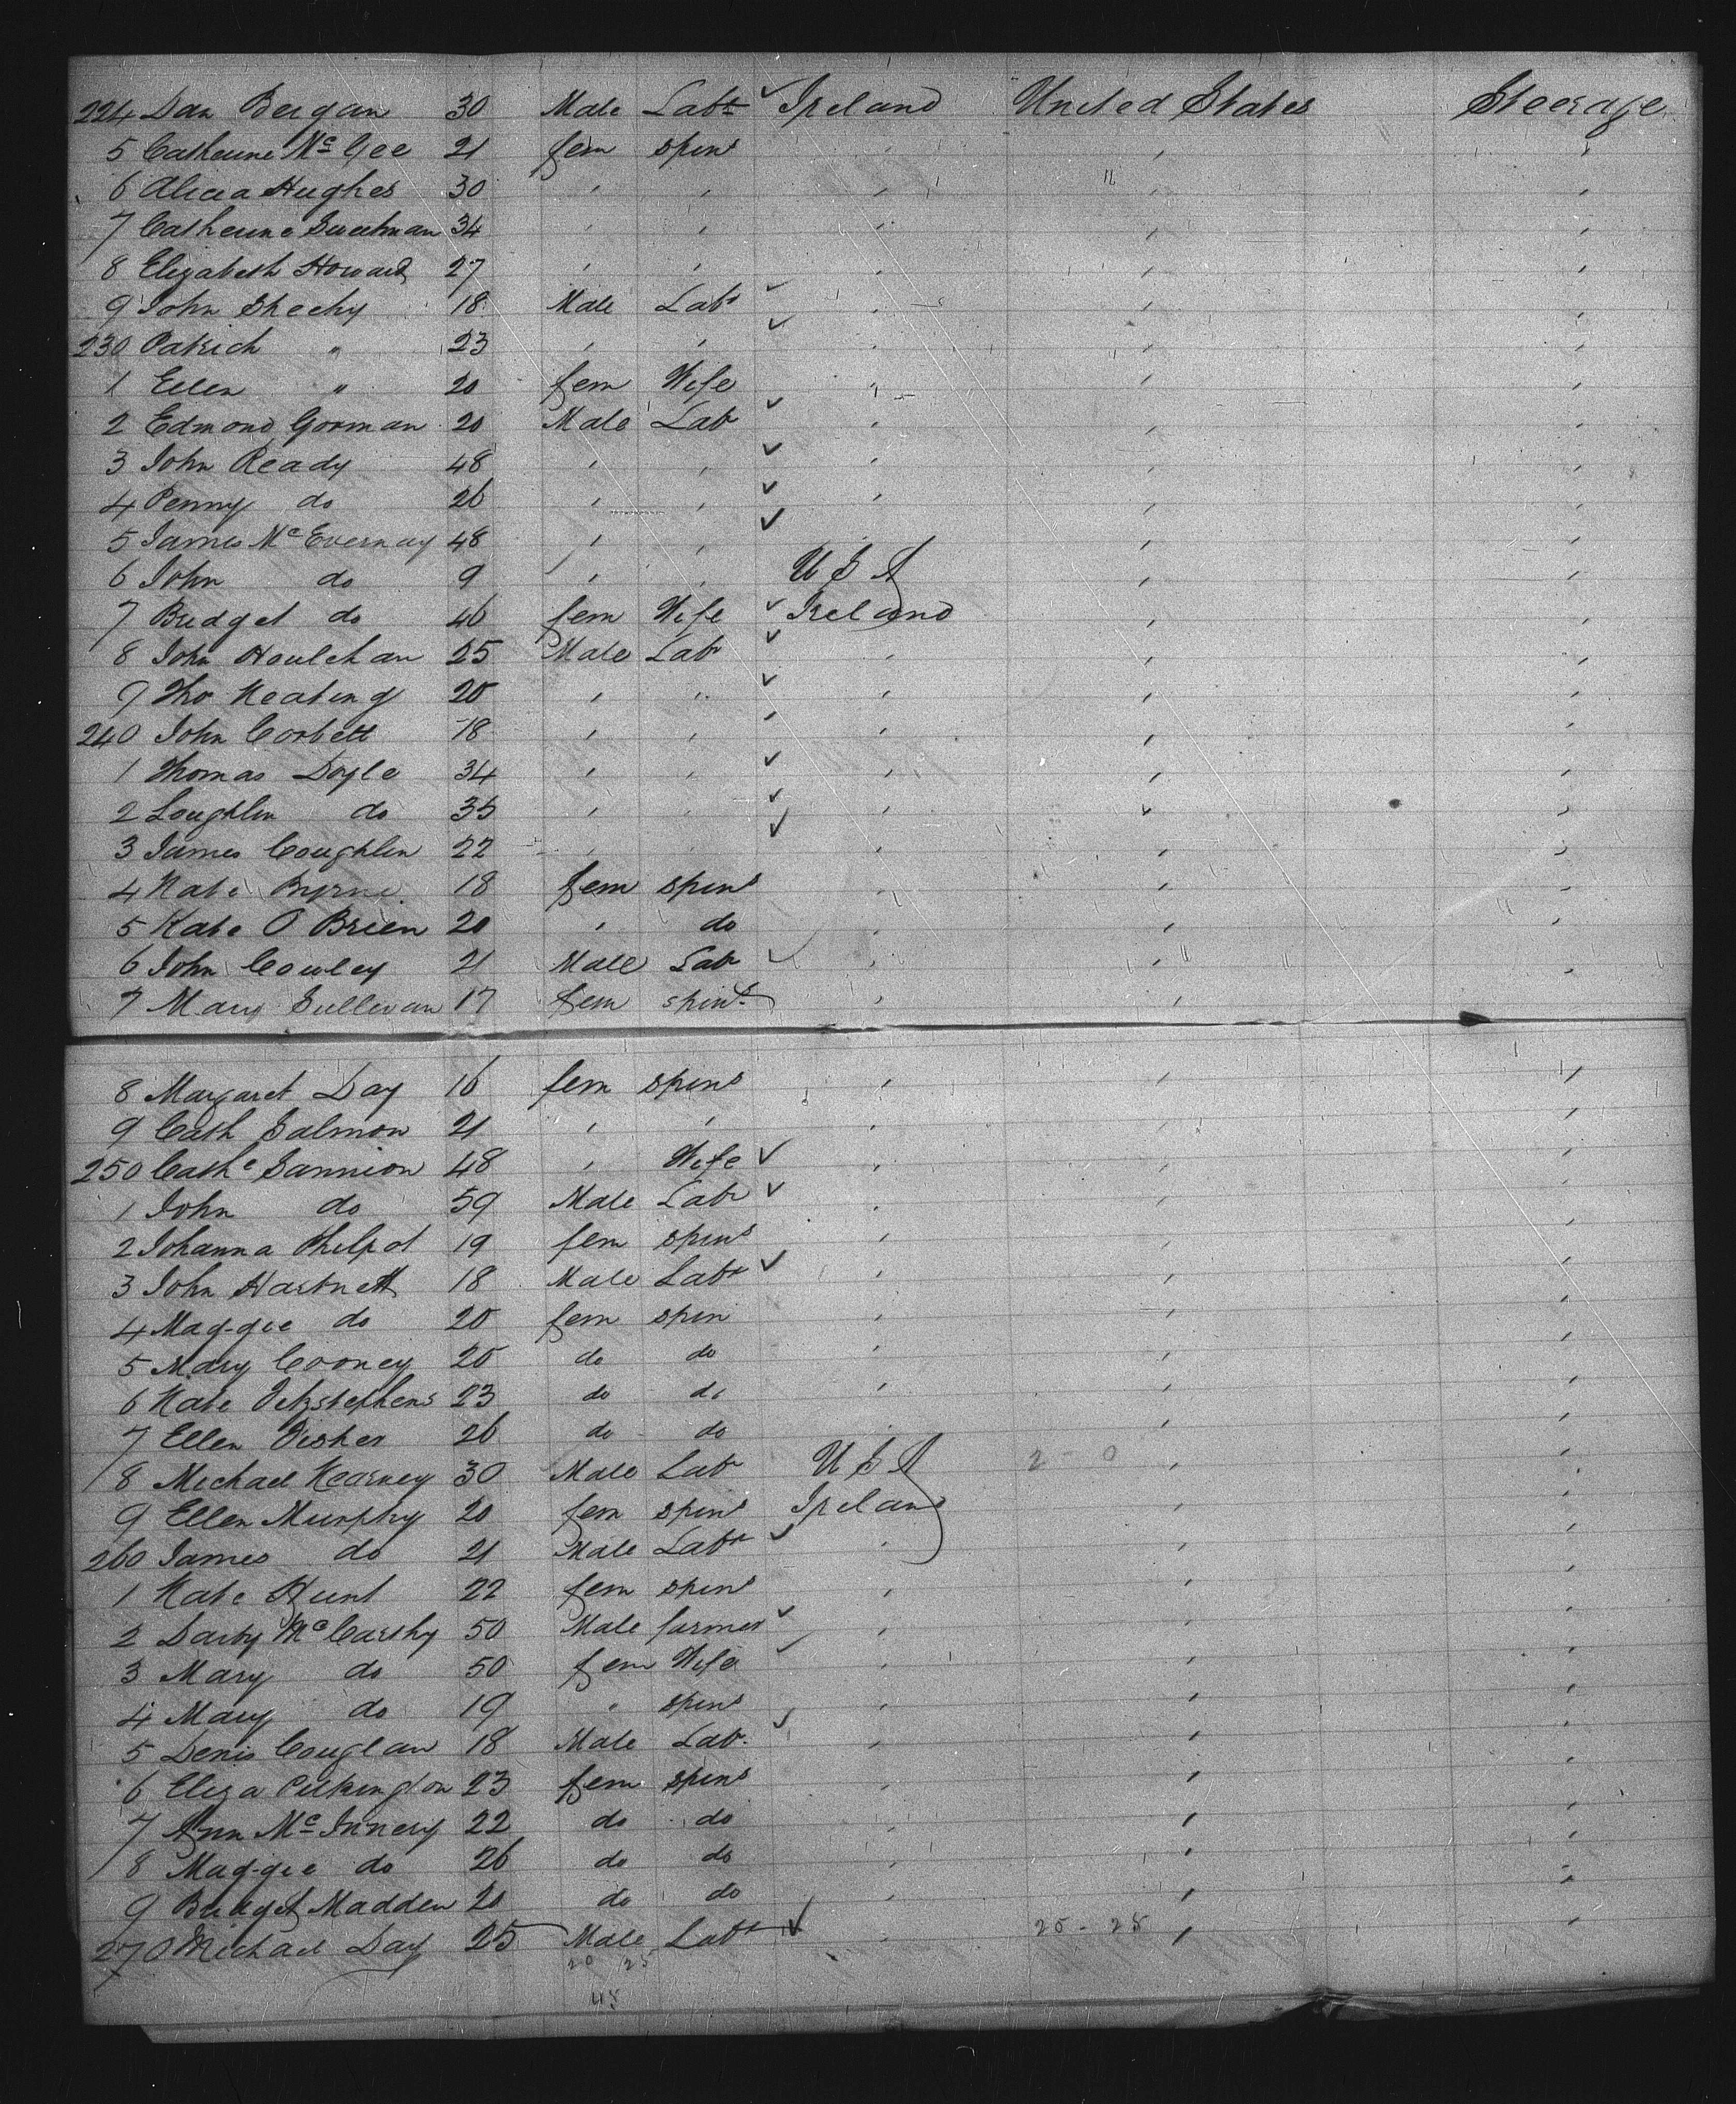 224 Dan Bergan 30 Male Labr ✓ Ireland United States Steerage
5 Catherine McGee 21 fem spins " " "
6 Alicia Hughes 30 " " " " "
7 Catherine Sweetman 34 " " " " "
8 Elizabeth Howard 27 " " " " "
9 John Sheehy 18 Male Labr ✓ " " "
230 Patrick " 23 " " ✓ " " "
1 Ellen " 20 fem Wife " " "
2 Edmond Gorman 20 Male Lab ✓ " " "
3 John Ready 48 " " ✓ " " "
4 Penny do 26 " " ✓ " " "
5 James McEvernay 48 " " ✓ " "
6 John do 9 " " U S A " "
7 Bridget do 46 fem Wife ✓ Ireland " "
8 John Houlehan 25 Male Labr ✓ " " "
9 Tho Keating 20 " " ✓ " " "
240 John Corbett 18 " " ✓ " " "
1 Thomas Doyle 34 " " ✓ " " "
2 Loughlin do 35 " " ✓ " " "
3 James Coughlin 22 " " ✓ " " "
4 Kate Byrne 18 fem spins " " "
5 Kate O Brien 20 " do " " "
6 John Cowley 21 Male Lab ✓ " " "
7 Mary Sullivan 17 fem spint " "
8 Margaret Day 16 fem spins " " "
9 Cath Salmon 21 " " " " "
250 Cathe Sannion 48 " Wife ✓ " " "
1 John do 59 Male Labr ✓ " " "
2 Johanna Philpot 19 fem spins " "
3 John Hartnett 18 Male Labr ✓ " " "
4 Maggie do 20 fem spin " " "
5 Mary Cooney 20 do do " " "
6 Kate Fitzstephens 23 do do " " "
7 Ellen Fisher 26 do do " " "
8 Michael Kearney 30 Male Lab U S A 2 - 0 " "
9 Ellen Murphy 20 fem spins Ireland " "
260 James do 21 Male Labr ✓ " " "
1 Kate Hunt 22 fem spins " " "
2 Darby McCarthy 50 Male farmer ✓ " " "
3 Mary do 50 fem Wife ✓ " " "
4 Mary do 19 " spins " " "
5 Denis Couglan 18 Male Lab. ✓ " " "
6 Eliza Pilkington 23 fem spins " " "
7 Ann McInnery 22 do do " " "
8 Maggie do 26 do do " " "
9 Bridget Madden 20 do do " " "
270 Michael Day 25 Male Labr ✓ 20 - 25 " "
20 25
45